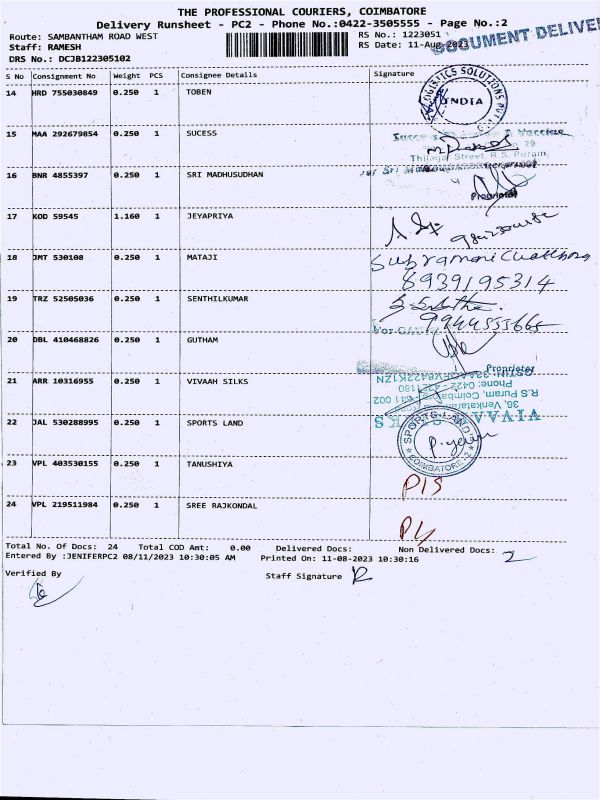 THE PROFESSIONAL COURIERS, COIMBATORE
Delivery Runsheet - PC2 - Phone No.:0422-3505555 - Page No.:2
Route: SAMBANTHAM ROAD WEST RS No.: 1223051
Staff: RAMESH RS Date: 11-Aug-2023
DOCUMENT DELIVE
DRS No.: DCJB122305102
S No Consignment No Weight PCS Consignee Details Signature
14 HRD 755030849 0.250 1 TOBEN
LOGISTICS SOLUTIONS PVT
INDIA
15 MAA 292679854 0.250 1 SUCESS
Vaccine
Thilagar Street, R.S. Puram,
16 BNR 4855397 0.250 1 SRI MADHUSUDHAN
for Sri
Proprietor
17 KOD 59545 1.160 1 JEYAPRIYA
18 JMT 530108 0.250 1 MATAJI
8939195314
19 TRZ 52505036 0.250 1 SENTHILKUMAR
20 DBL 410468826 0.250 1 GUTHAM
For
Proprietor
21 ARR 10316955 0.250 1 VIVAAH SILKS
Phone: 0422 -
R.S Puram, Coimbatore - 641 002
22 JAL 530288995 0.250 1 SPORTS LAND
SPORTS LAND
COIMBATORE-2
23 VPL 403530155 0.250 1 TANUSHIYA
24 VPL 219511984 0.250 1 SREE RAJKONDAL
Total No. Of Docs: 24 Total COD Amt: 0.00 Delivered Docs: Non Delivered Docs: 2
Entered By :JENIFERPC2 08/11/2023 10:30:05 AM Printed On: 11-08-2023 10:30:16
Verified By Staff Signature